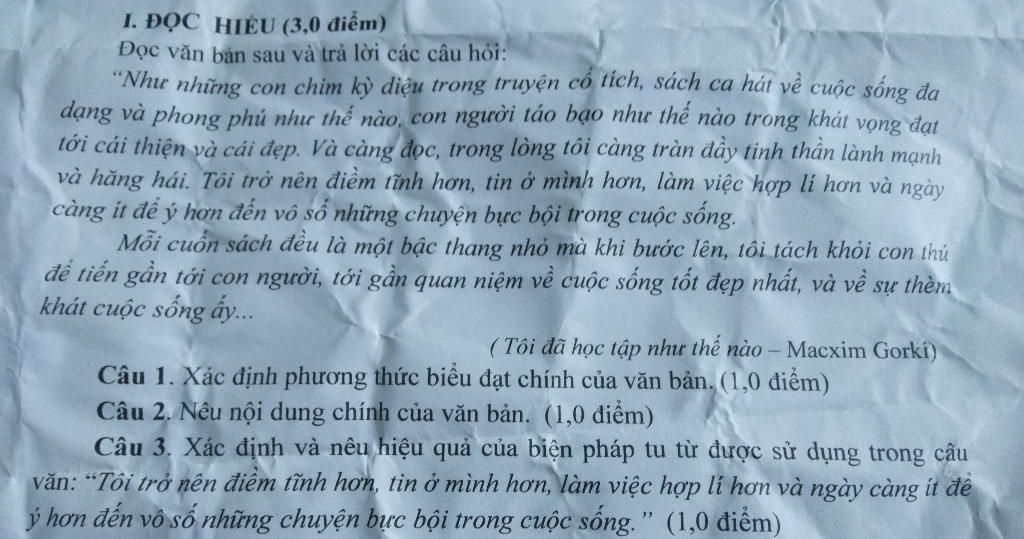 I. ĐỌC HIỂU (3,0 điểm)
Đọc văn bản sau và trả lời các câu hỏi:
“Như những con chim kỳ diệu trong truyện cổ tích, sách ca hát về cuộc sống đa
dạng và phong phú như thế nào, con người táo bạo như thế nào trong khát vọng đạt
tới cái thiện và cái đẹp. Và càng đọc, trong lòng tôi càng tràn đầy tinh thần lành mạnh
và hăng hái. Tôi trở nên điềm tĩnh hơn, tin ở mình hơn, làm việc hợp lí hơn và ngày
càng ít để ý hơn đến vô số những chuyện bực bội trong cuộc sống.
Mỗi cuốn sách đều là một bậc thang nhỏ mà khi bước lên, tôi tách khỏi con thú
để tiến gần tới con người, tới gần quan niệm về cuộc sống tốt đẹp nhất, và về sự thèm
khát cuộc sống ấy...
( Tôi đã học tập như thế nào – Macxim Gorki)
Câu 1. Xác định phương thức biểu đạt chính của văn bản. (1,0 điểm)
Câu 2. Nêu nội dung chính của văn bản. (1,0 điểm)
Câu 3. Xác định và nêu hiệu quả của biện pháp tu từ được sử dụng trong câu
văn: “Tôi trở nên điềm tĩnh hơn, tin ở mình hơn, làm việc hợp lí hơn và ngày càng ít để
ý hơn đến vô số những chuyện bực bội trong cuộc sống. ” (1,0 điểm)